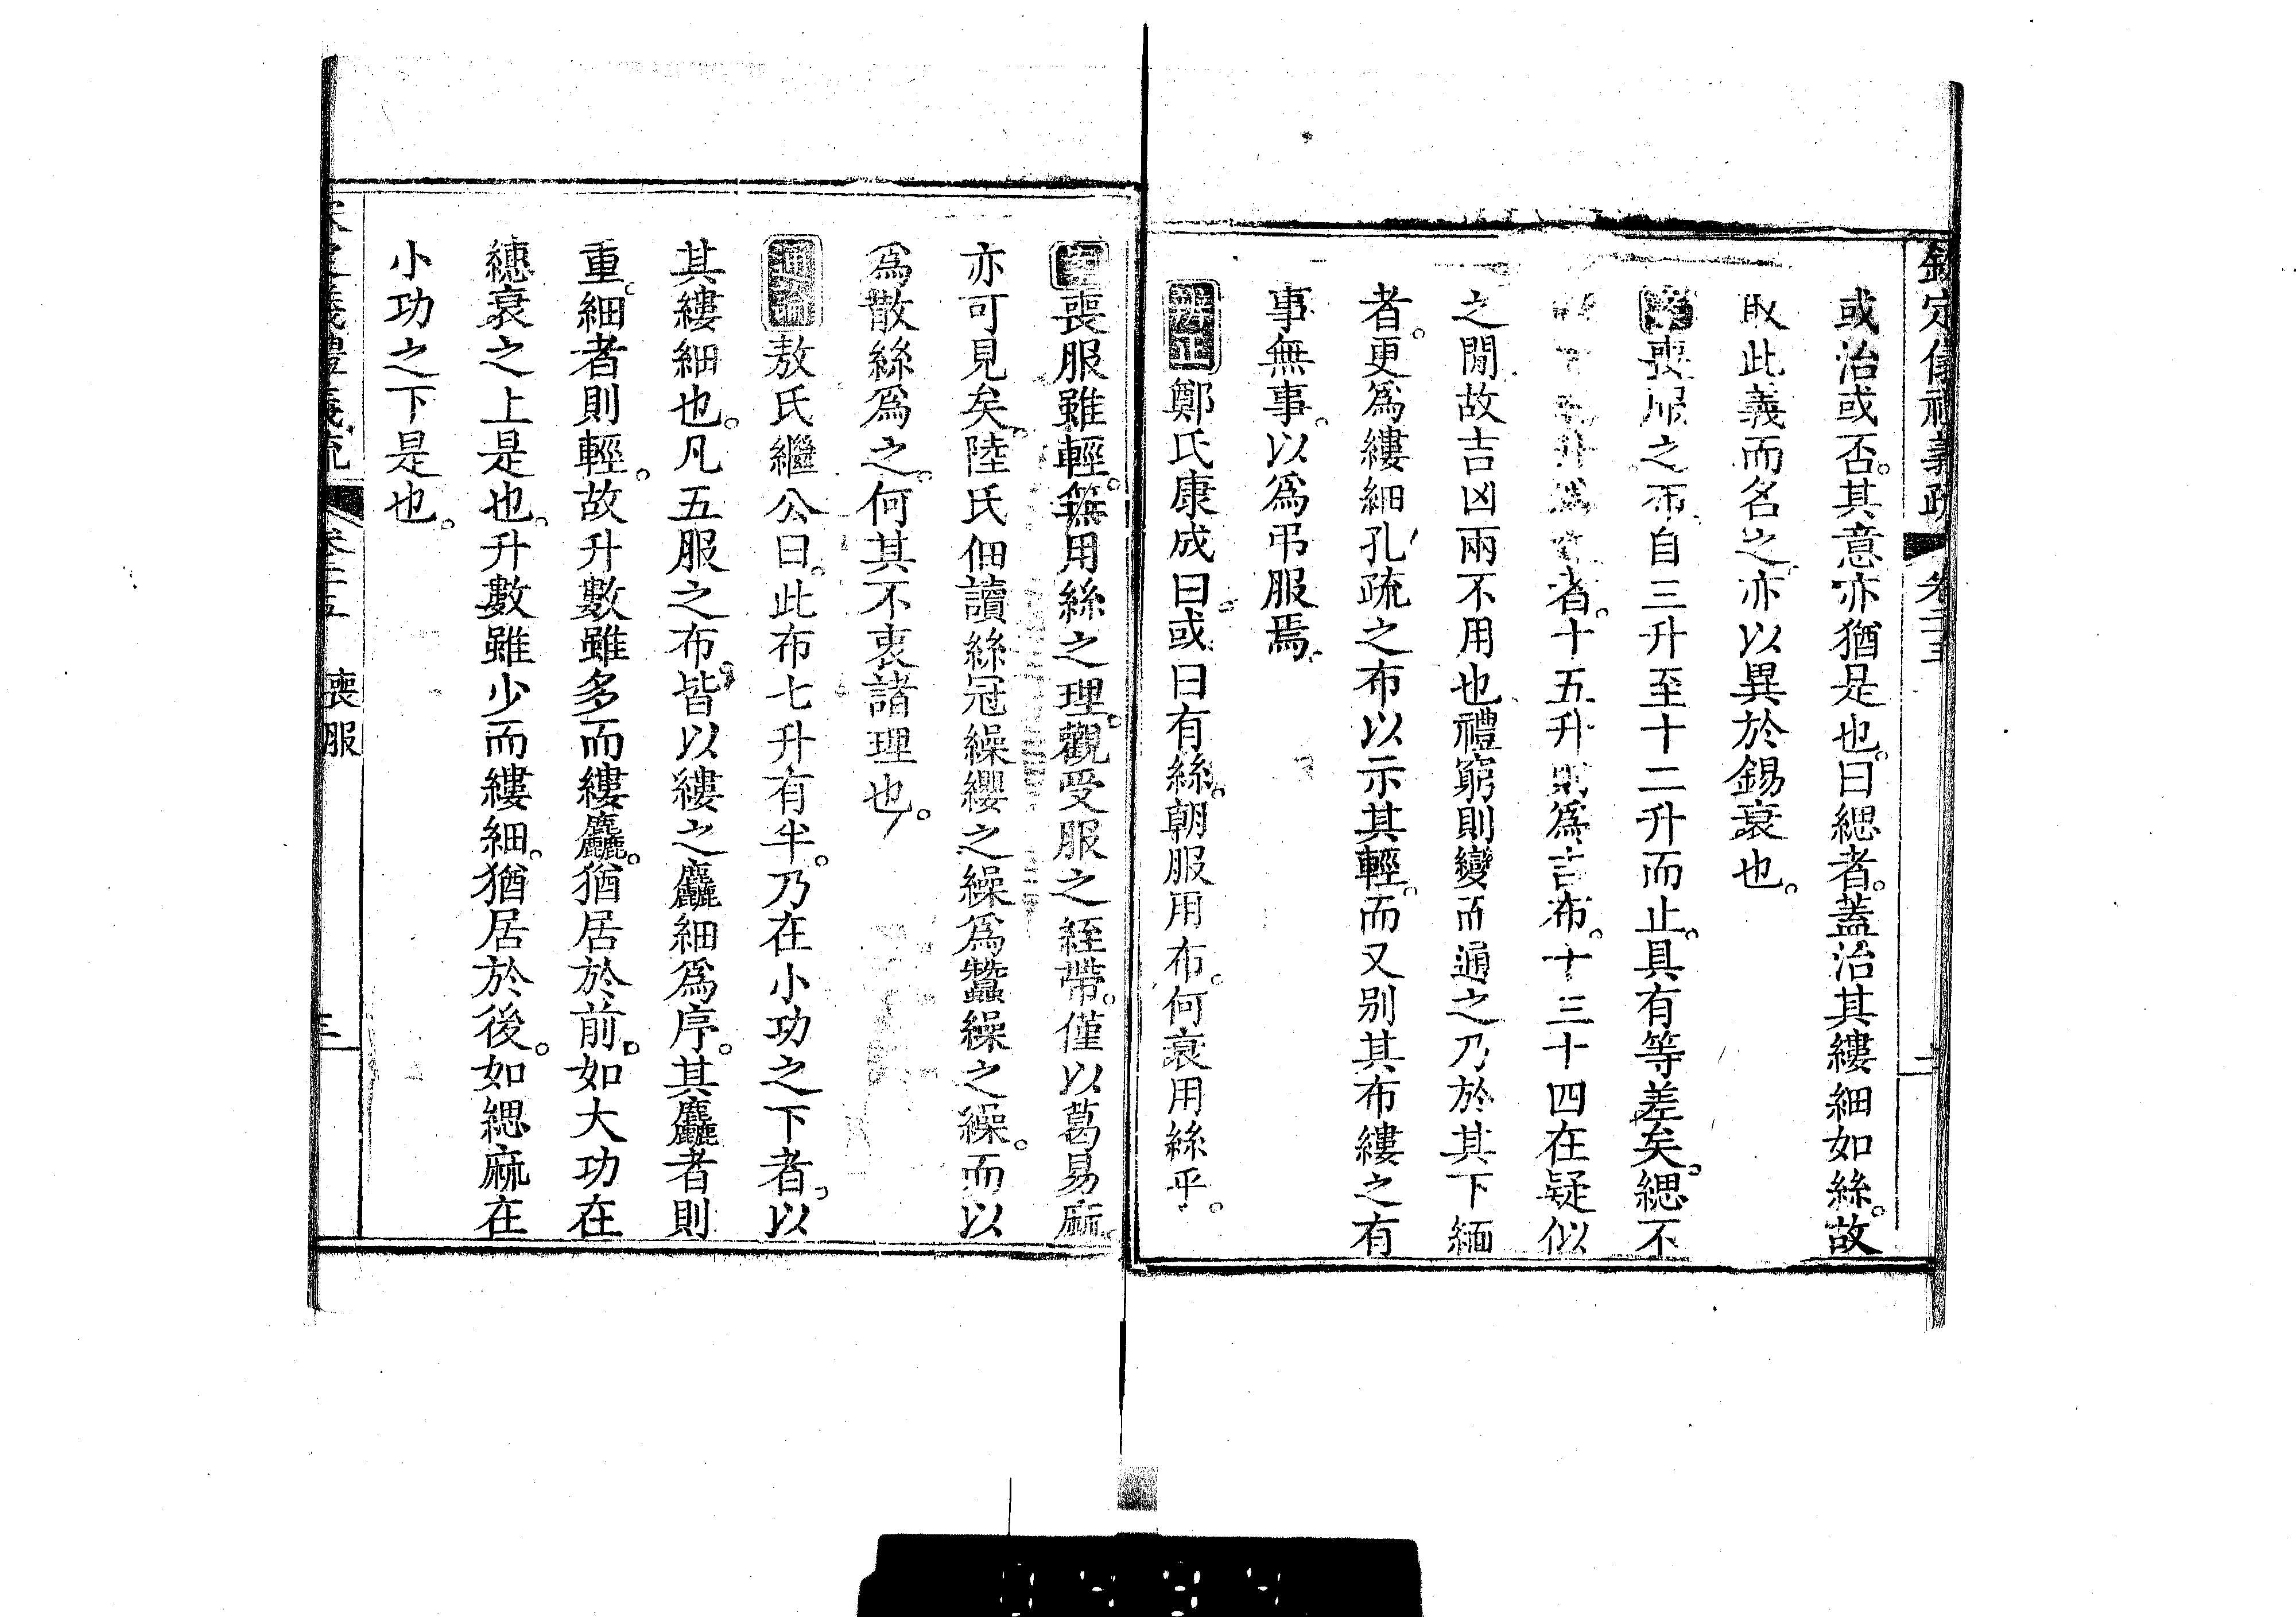 欽定儀禮義疏 卷二十五
或治或否其意亦猶是也曰緦者蓋治其縷細如絲故
取此義而名之亦以異於錫衰也
喪服之布自三升至十二升而止具有等差矣緦不
升 者十五升則爲吉布十三十四在疑似
之間故吉凶兩不用也禮窮則變而通之乃於其下緬
者更爲縷細孔疏之布以示其輕而又别其布縷之有
事無事以爲弔服焉
辨正鄭氏康成曰或曰有絲朝服用布何衰用絲乎
案喪服雖輕無用絲之理觀受服之絰帶僅以葛易麻
亦可見矣陸氏佃讀絲冠繰纓之繰爲蠶繰之繰而以
爲散絲爲之何其不衷諸理也
通論敖氏繼公曰此布七升有半乃在小功之下者以
其縷細也凡五服之布皆以縷之麤細爲序其麤者則
重細者則輕故升數雖多而縷麤猶居於前如大功在
繐衰之上是也升數雖少而縷細猶居於後如緦麻在
小功之下是也
義禮義疏 卷二十五 喪服